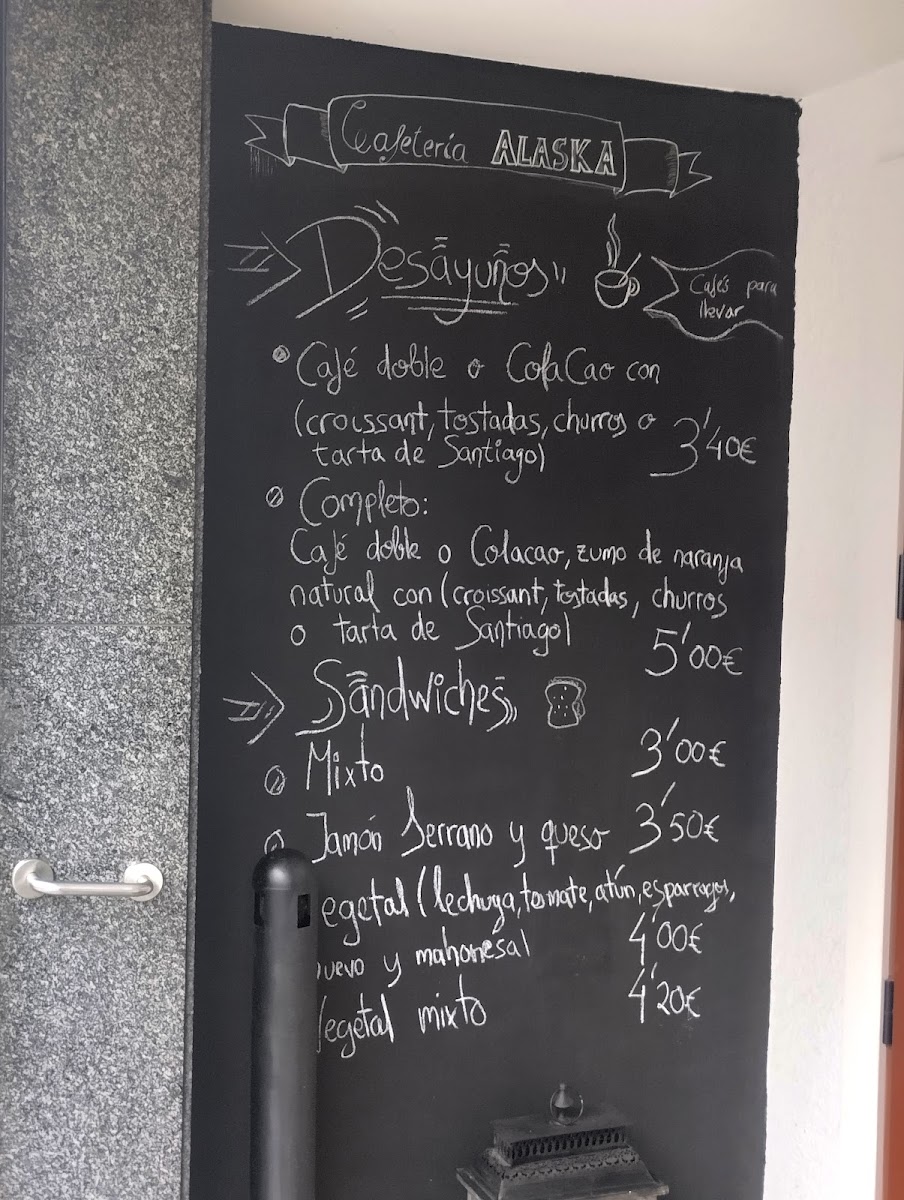 Cafetería ALASKA
Desayunos
Cafés para
llevar
Café doble o ColaCao con
(croissant, tostadas, churros o
tarta de Santiago) 3'40€
Completo:
Café doble o Colacao, zumo de naranja
natural con (croissant, tostadas, churros
o tarta de Santiago) 5'00€
Sandwiches
Mixto 3'00€
Jamón Serrano y queso 3'50€
egetal (lechuga, tomate, atún, esparragos,
uevo y mahonesa) 4'00€
Vegetal mixto 4'20€